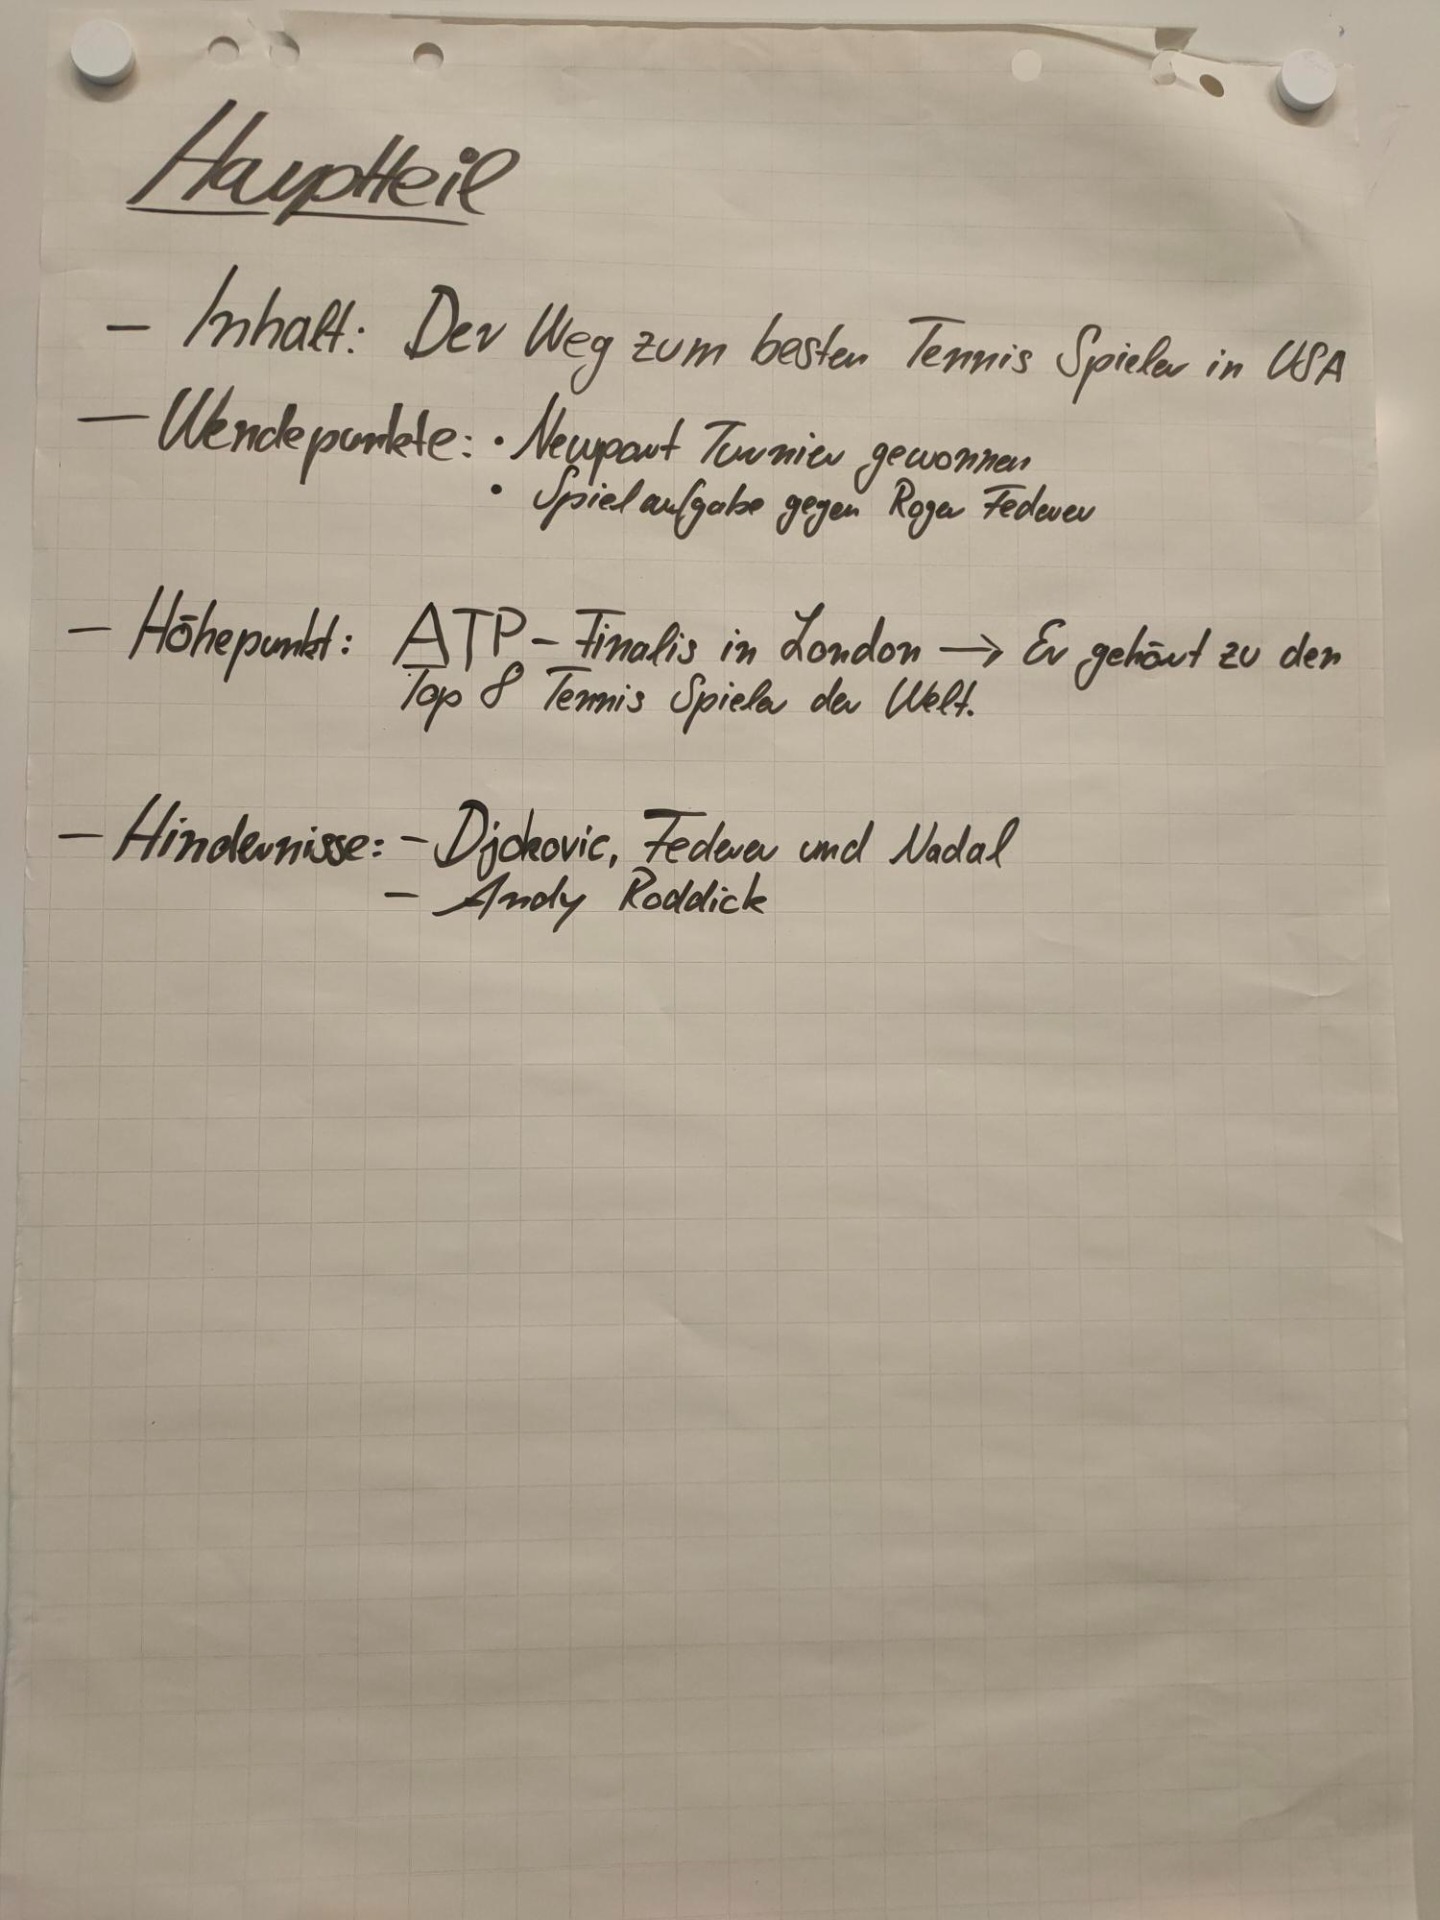 Hauptteil
- Inhalt: Der Weg zum besten Tennis Spieler in USA
- Wendepunkte: • Newport Turnier gewonnen
• Spielaufgabe gegen Roger Federer
- Höhepunkt: ATP - Finalis in London → Er gehört zu den
Top 8 Tennis Spieler der Welt.
- Hindernisse: - Djokovic, Federer und Nadal
- Andy Roddick